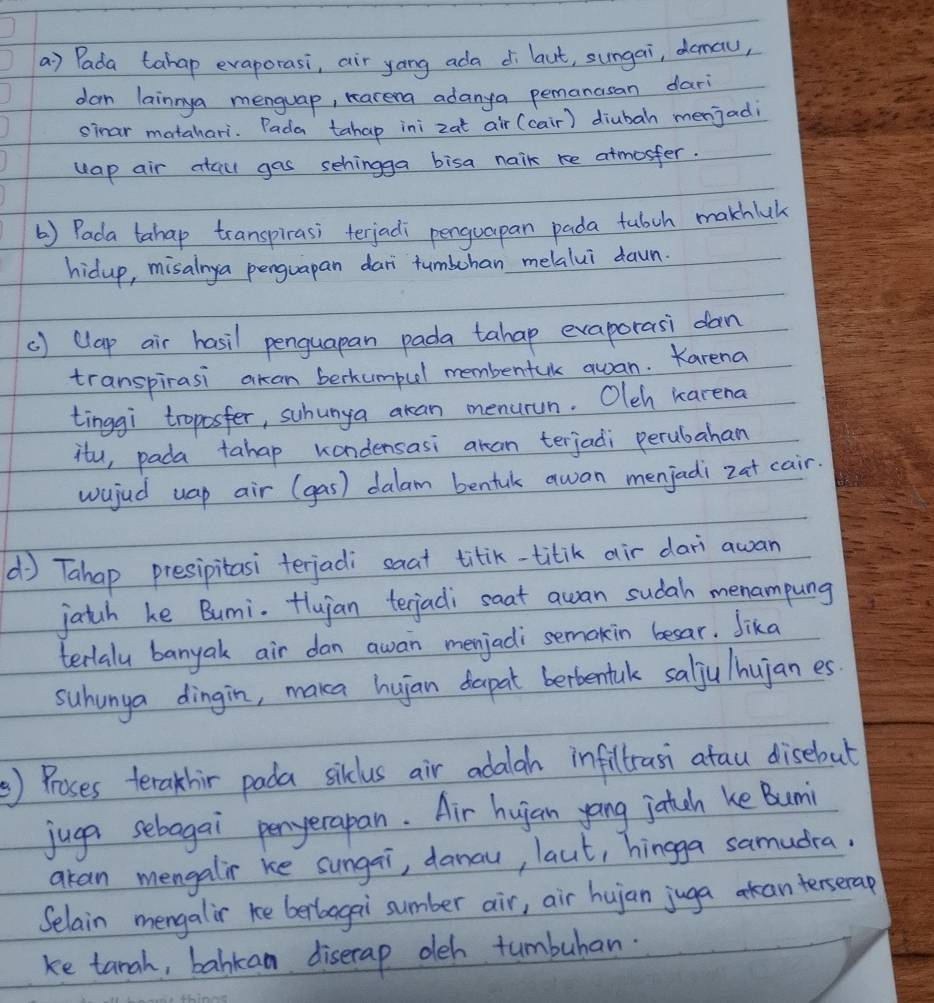 a.) Pada tahap evaporasi, air yang ada di laut, sungai, danau,
dan lainnya menguap, karena adanya pemanasan dari
sinar matahari. Pada tahap ini zat air (cair) diubah menjadi
uap air atau gas sehingga bisa naik ke atmosfer.
b) Pada tahap transpirasi terjadi penguapan pada tubuh makhluk
hidup, misalnya penguapan dari tumbuhan melalui daun.
c) Uap air hasil penguapan pada tahap evaporasi dan
transpirasi akan berkumpul membentuk awan. Karena
tinggi troposfer, suhunya akan menurun. Oleh karena
itu, pada tahap kondensasi akan terjadi perubahan
wujud uap air (gas) dalam bentuk awan menjadi zat cair.
d.) Tahap presipitasi terjadi saat titik-titik air dari awan
jatuh ke Bumi. Hujan terjadi saat awan sudah menampung
terlalu banyak air dan awan menjadi semakin besar. Jika
suhunya dingin, maka hujan dapat berbentuk salju/hujan es.
e) Proses terakhir pada siklus air adalah infiltrasi atau disebut
juga sebagai penyerapan. Air hujan yang jatuh ke Bumi
akan mengalir ke sungai, danau, laut, hingga samudra.
Selain mengalir ke berbagai sumber air, air hujan juga akan terserap
ke tanah, bahkan diserap oleh tumbuhan.
things